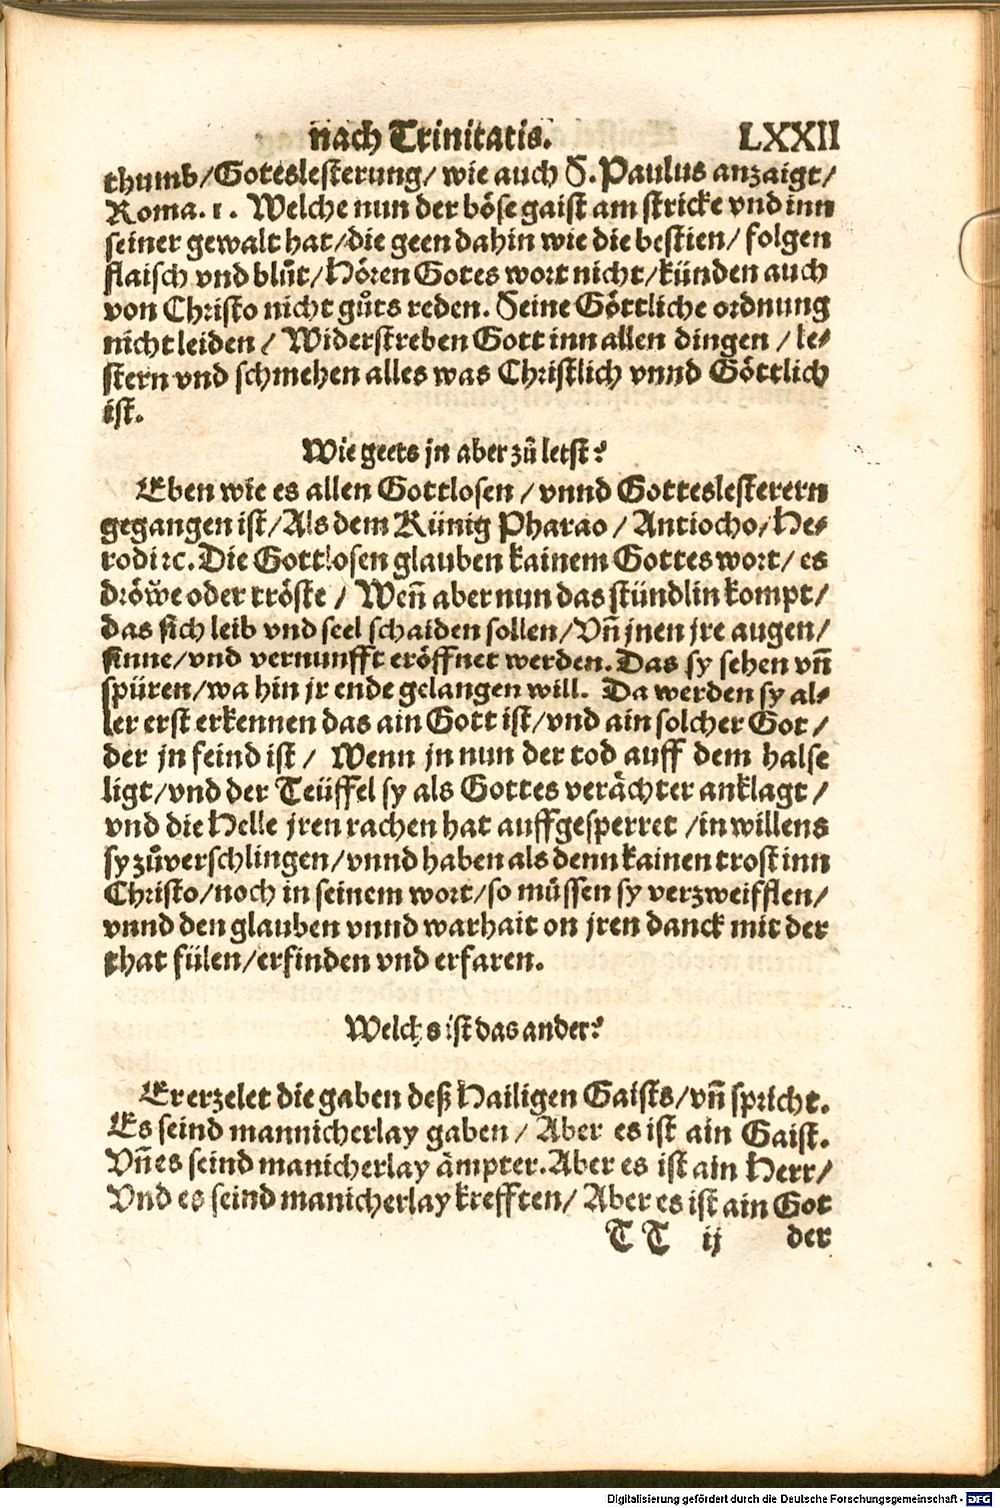 nach Trinitatis. LXXII
thumb/Goteslesterung/ wie auch S. Paulus anzaigt/
Roma. 1. Welche nun der böse gaist am stricke vnd inn
seiner gewalt hat/die geen dahin wie die bestien/ folgen
flaisch vnd blůt/Hören Gotes wort nicht/künden auch
von Christo nicht gůts reden. Seine Göttliche ordnung
nicht leiden / Widerstreben Gott inn allen dingen / le-
stern vnd schmehen alles was Christlich vnnd Göttlich
ist.
Wie geets jn aber zů letst?
Eben wie es allen Gottlosen / vnnd Gotteslesterern
gegangen ist/Als dem Künig Pharao / Antiocho/He-
rodi ꝛc. Die Gottlosen glauben kainem Gottes wort/ es
dröwe oder tröste / Weñ aber nun das stündlin kompt/
das sich leib vnd seel schaiden sollen/Vñ jnen jre augen/
sinne/vnd vernunfft eröffnet werden. Das sy sehen vñ
spüren/wa hin jr ende gelangen will. Da werden sy al-
ler erst erkennen das ain Gott ist/vnd ain solcher Got /
der jn feind ist / Wenn jn nun der tod auff dem halse
ligt/vnd der Teüffel sy als Gottes verächter anklagt /
vnd die Helle jren rachen hat auffgesperret /in willens
sy zůverschlingen/vnnd haben als denn kainen trost inn
Christo/noch in seinem wort/so müssen sy verzweifflen/
vnnd den glauben vnnd warhait on jren danck mit der
that fülen/erfinden vnd erfaren.
Welchs ist das ander?
Er erzelet die gaben deß Hailigen Gaists/vñ spricht.
Es seind mannicherlay gaben / Aber es ist ain Gaist.
Vñ es seind manicherlay ämpter. Aber es ist ain Herr/
Vnd es seind manicherlay krefften/ Aber es ist ain Got
T T ij der
Digitalisierung gefördert durch die Deutsche Forschungsgemeinschaft - DFG